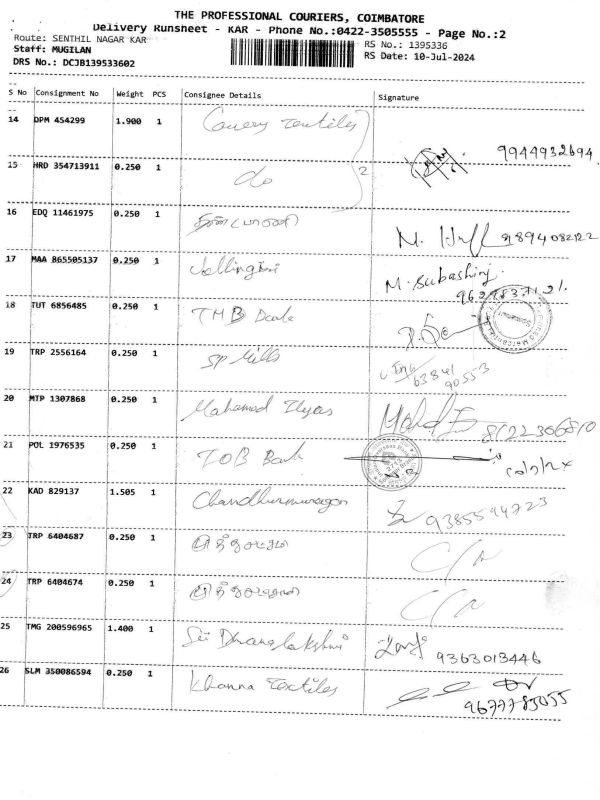 THE PROFESSIONAL COURIERS, COIMBATORE
Delivery Runsheet - KAR - Phone No.:0422-3505555 - Page No.:2
Route: SENTHIL NAGAR KAR RS No.: 1395336
Staff: MUGILAN RS Date: 10-Jul-2024
DRS No.: DCJB139533602
S No Consignment No Weight PCS Consignee Details Signature
14 DPM 454299 1.900 1 Textiles 9944932694
15 HRD 354713911 0.250 1 do 2
16 EDQ 11461975 0.250 1 M.
17 MAA 865505137 0.250 1 M. Subashini
18 TUT 6856485 0.250 1 TMB
19 TRP 2556164 0.250 1 SP Mills 63841 90553
20 MTP 1307868 0.250 1 Mahamad Ilyas Mohd 8122306810
21 POL 1976535 0.250 1 IOB Bank
22 KAD 829137 1.505 1 Chandhurmurugan 9385594723
23 TRP 6404687 0.250 1 C/A
24 TRP 6404674 0.250 1 C/A
25 TMG 200596965 1.400 1 Sri Dhanalakshmi 9363013446
26 SLM 350086594 0.250 1 Khanna Textiles 9677785055